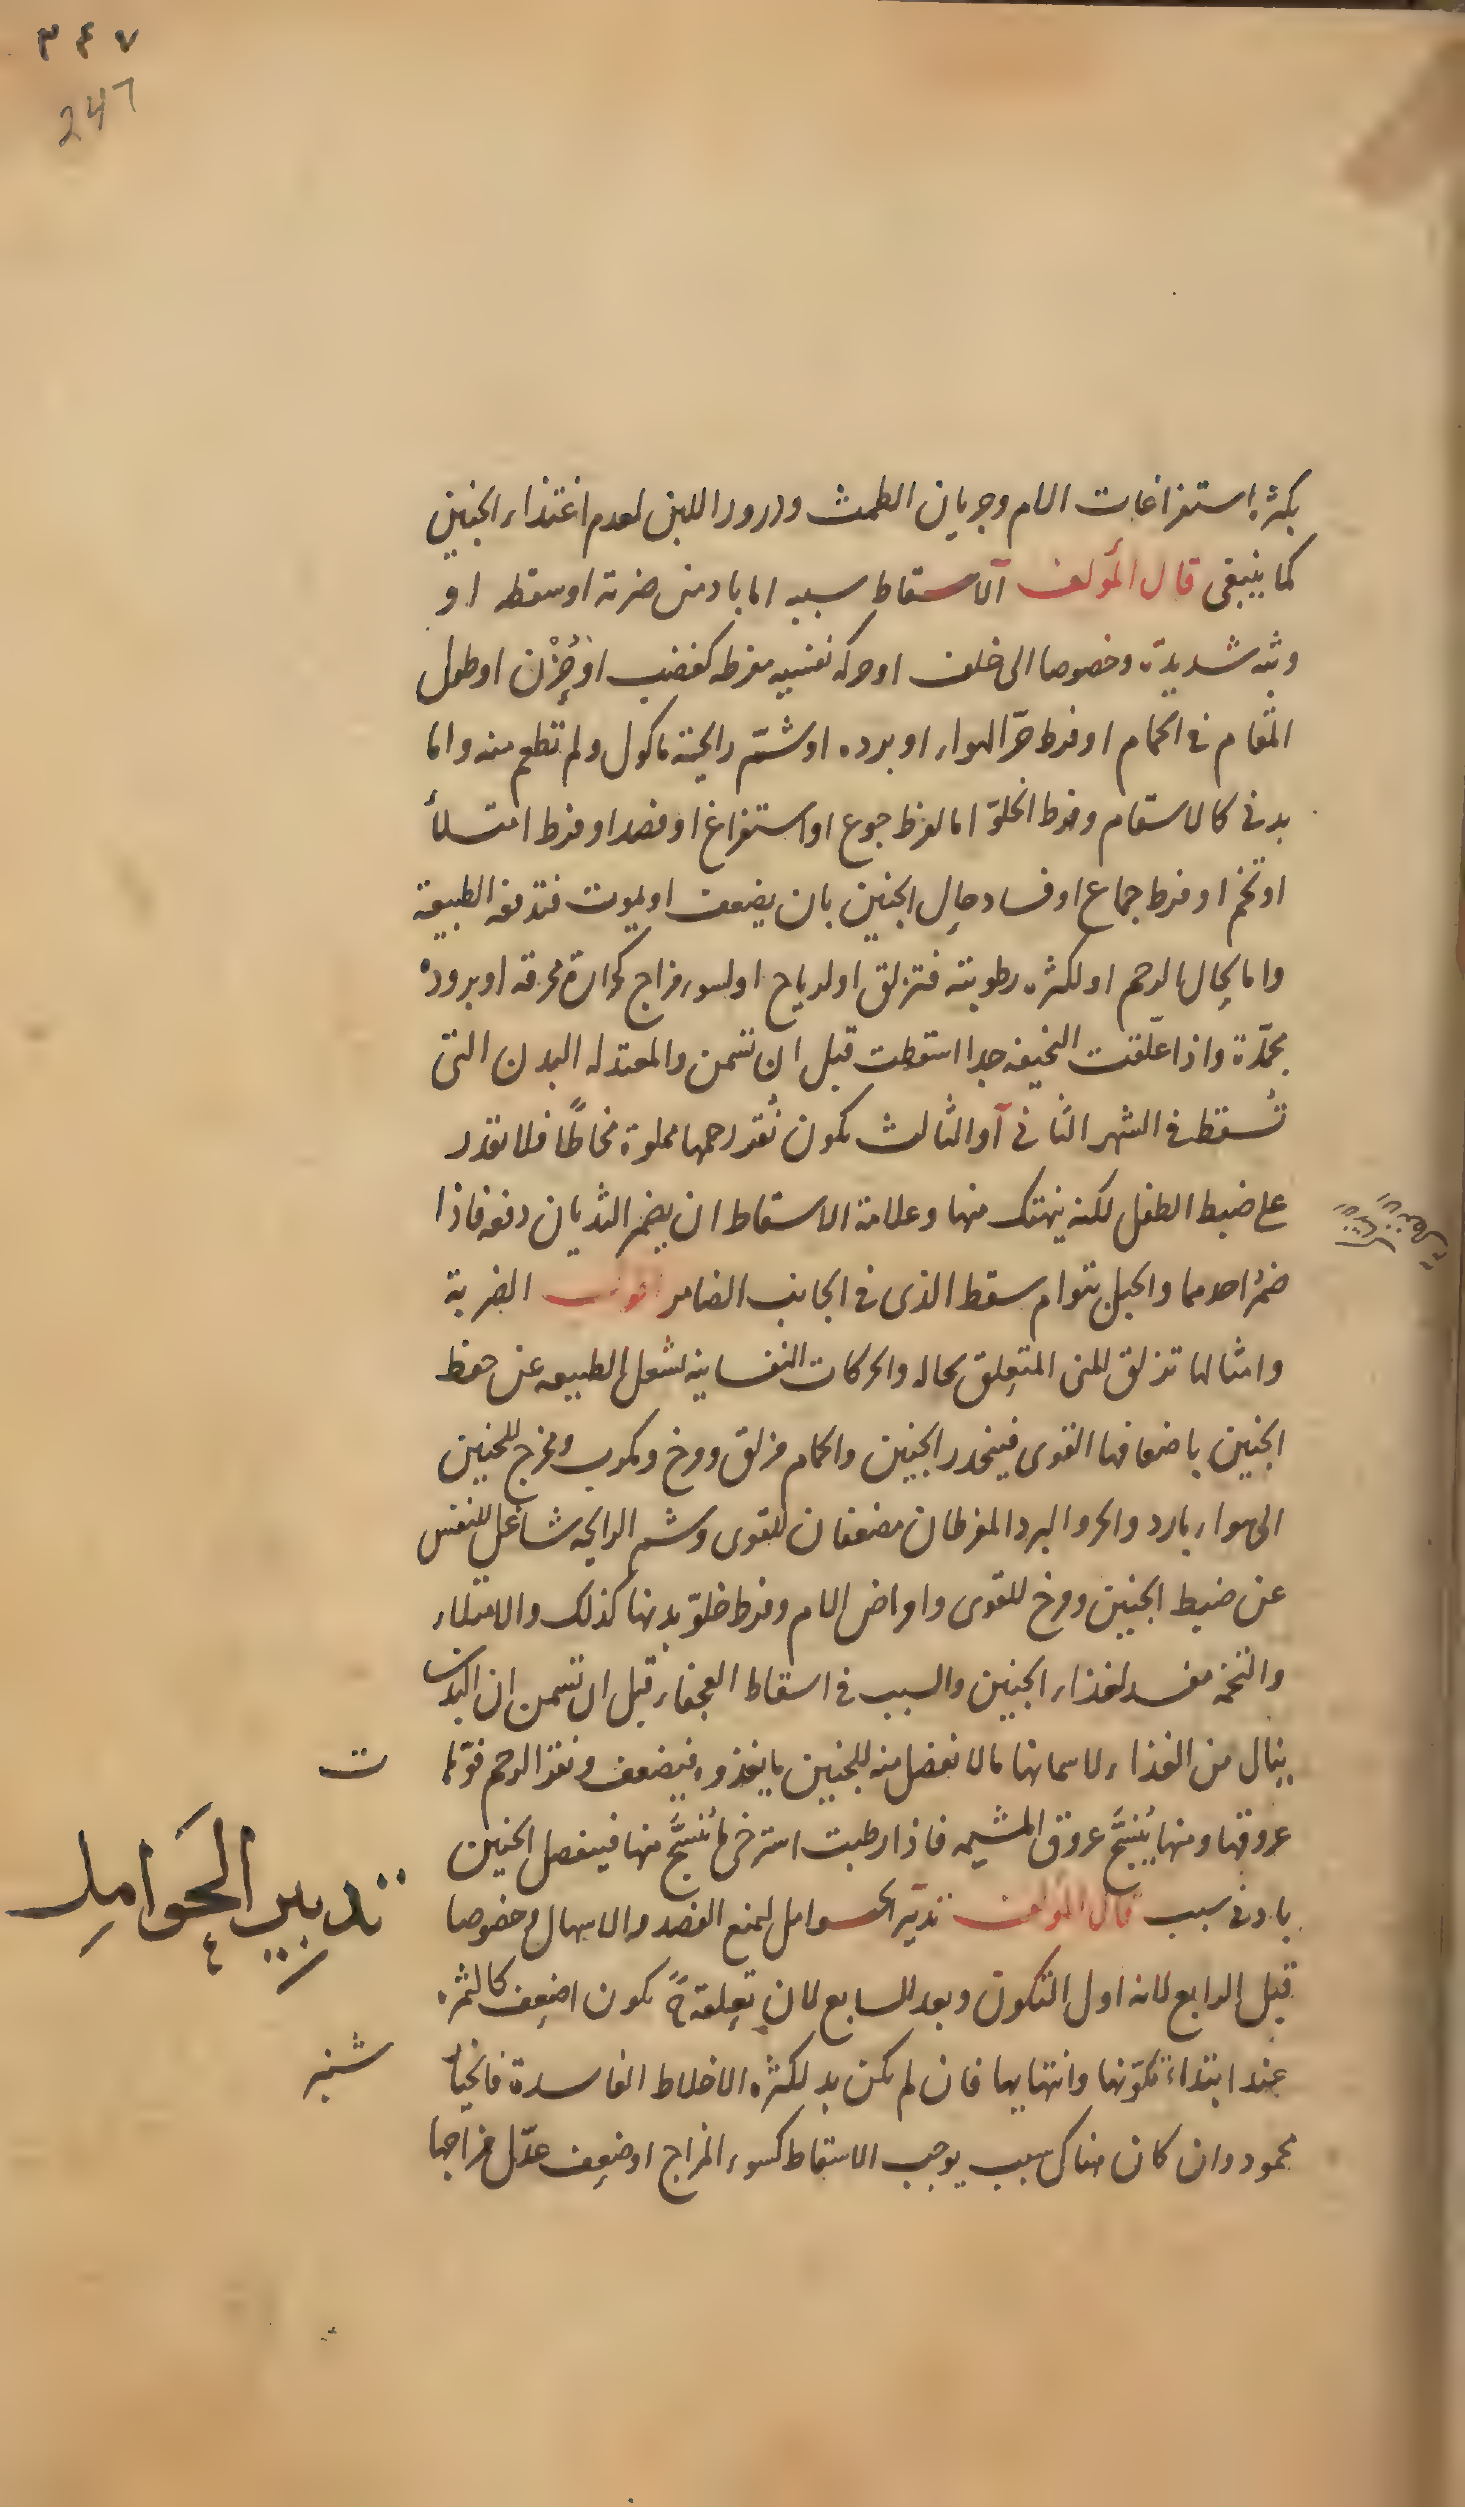 ٣٤٧
247
بكثرة استفراغات الام وجريان الطمث ودرور اللبن لعدم اغتذاء الجنين
كما ينبغى قال المؤلف الاسقاط سببه اما بادمن ضربة او سقطه او
وثبه شديدة وخصوصا الى خلف او حركه نفسيه مفرطه كغضب او حُزْن او طول
المقام فى الحمام او فرط حرّ الهواء او برده او شمّ رايحة ماكول ولم تطعم منه واما
بدنى كالاسقام وفرط الخلوّ اما لفرط جوع او استفراغ او فصد او فرط امتلأ
او تخم او فرط جماع او فساد حال الجنين بان يضعف او يموت فتدفعه الطبيعة
واما لحال الرحم او لكثرة رطوبته فتزلق او لرياح او لسوء مزاج كحرارة محرقه او برودة
مجمّدة واذا علّقت النحيفه جدا اسقطت قبل ان تسمن والمعتدله البدن التى
تُسقط فى الشهر الثانى او الثالث يكون نُقر رحمها مملوة مخاطًا فلا تقدر
على ضبط الطفل لكنه ينهتك منها وعلامة الاسقاط ان يضمر الثديان دفعه فاذا
ضمُر احدهما والحبل بتوام سقط الذى فى الجانب الضامر الضربة
وامثالها تزلق للمنى المتعلق بحاله والحركات النفسانيه لشغلها الطبيعه عن حفظ
الجنين باضعافها القوى فينحدر الجنين والحمام مزلق ومرخ ومكرب ومخرج للجنين
الى هواء بارد والحر والبرد المفرطان مضعفان للقوى وشم الرايحه شاغل للنفس
عن ضبط الجنين ومرخ للقوى وامراض الام وفرط خلوّ بدنها كذلك والامتلاء
والتخمه مفسد لغذاء الجنين والسبب فى اسقاط العجفاء قبل ان تسمن ان البدن
ينال من الغذاء لاسمانها ما لا يفضل منه للجنين ما يغذوه فيضعف ونقر الرحم فوّهات
عروقها ومنها يُنسَج عروق المشيمه فاذا رطبت استرخى ما يُنسَج منها فينفصل الجنين
بادنى سبب قال المؤلف تدبير الحوامل ليمنع الفصد والاسهال وخصوصا
تدبير الحَوامِل
قبل الرابع لانه اول التكون وبعد السابع لان تعلقهَ ح يكون اضعف كالثمره
عند ابتداء تكوّنها وانتهايها فان لم يكن بد لكثره الاخلاط الفاسدة فالخيارشنبر
محمود وان كان هناك سبب يوجب الاسقاط كسوء المزاج او ضعف عدّل مزاجها